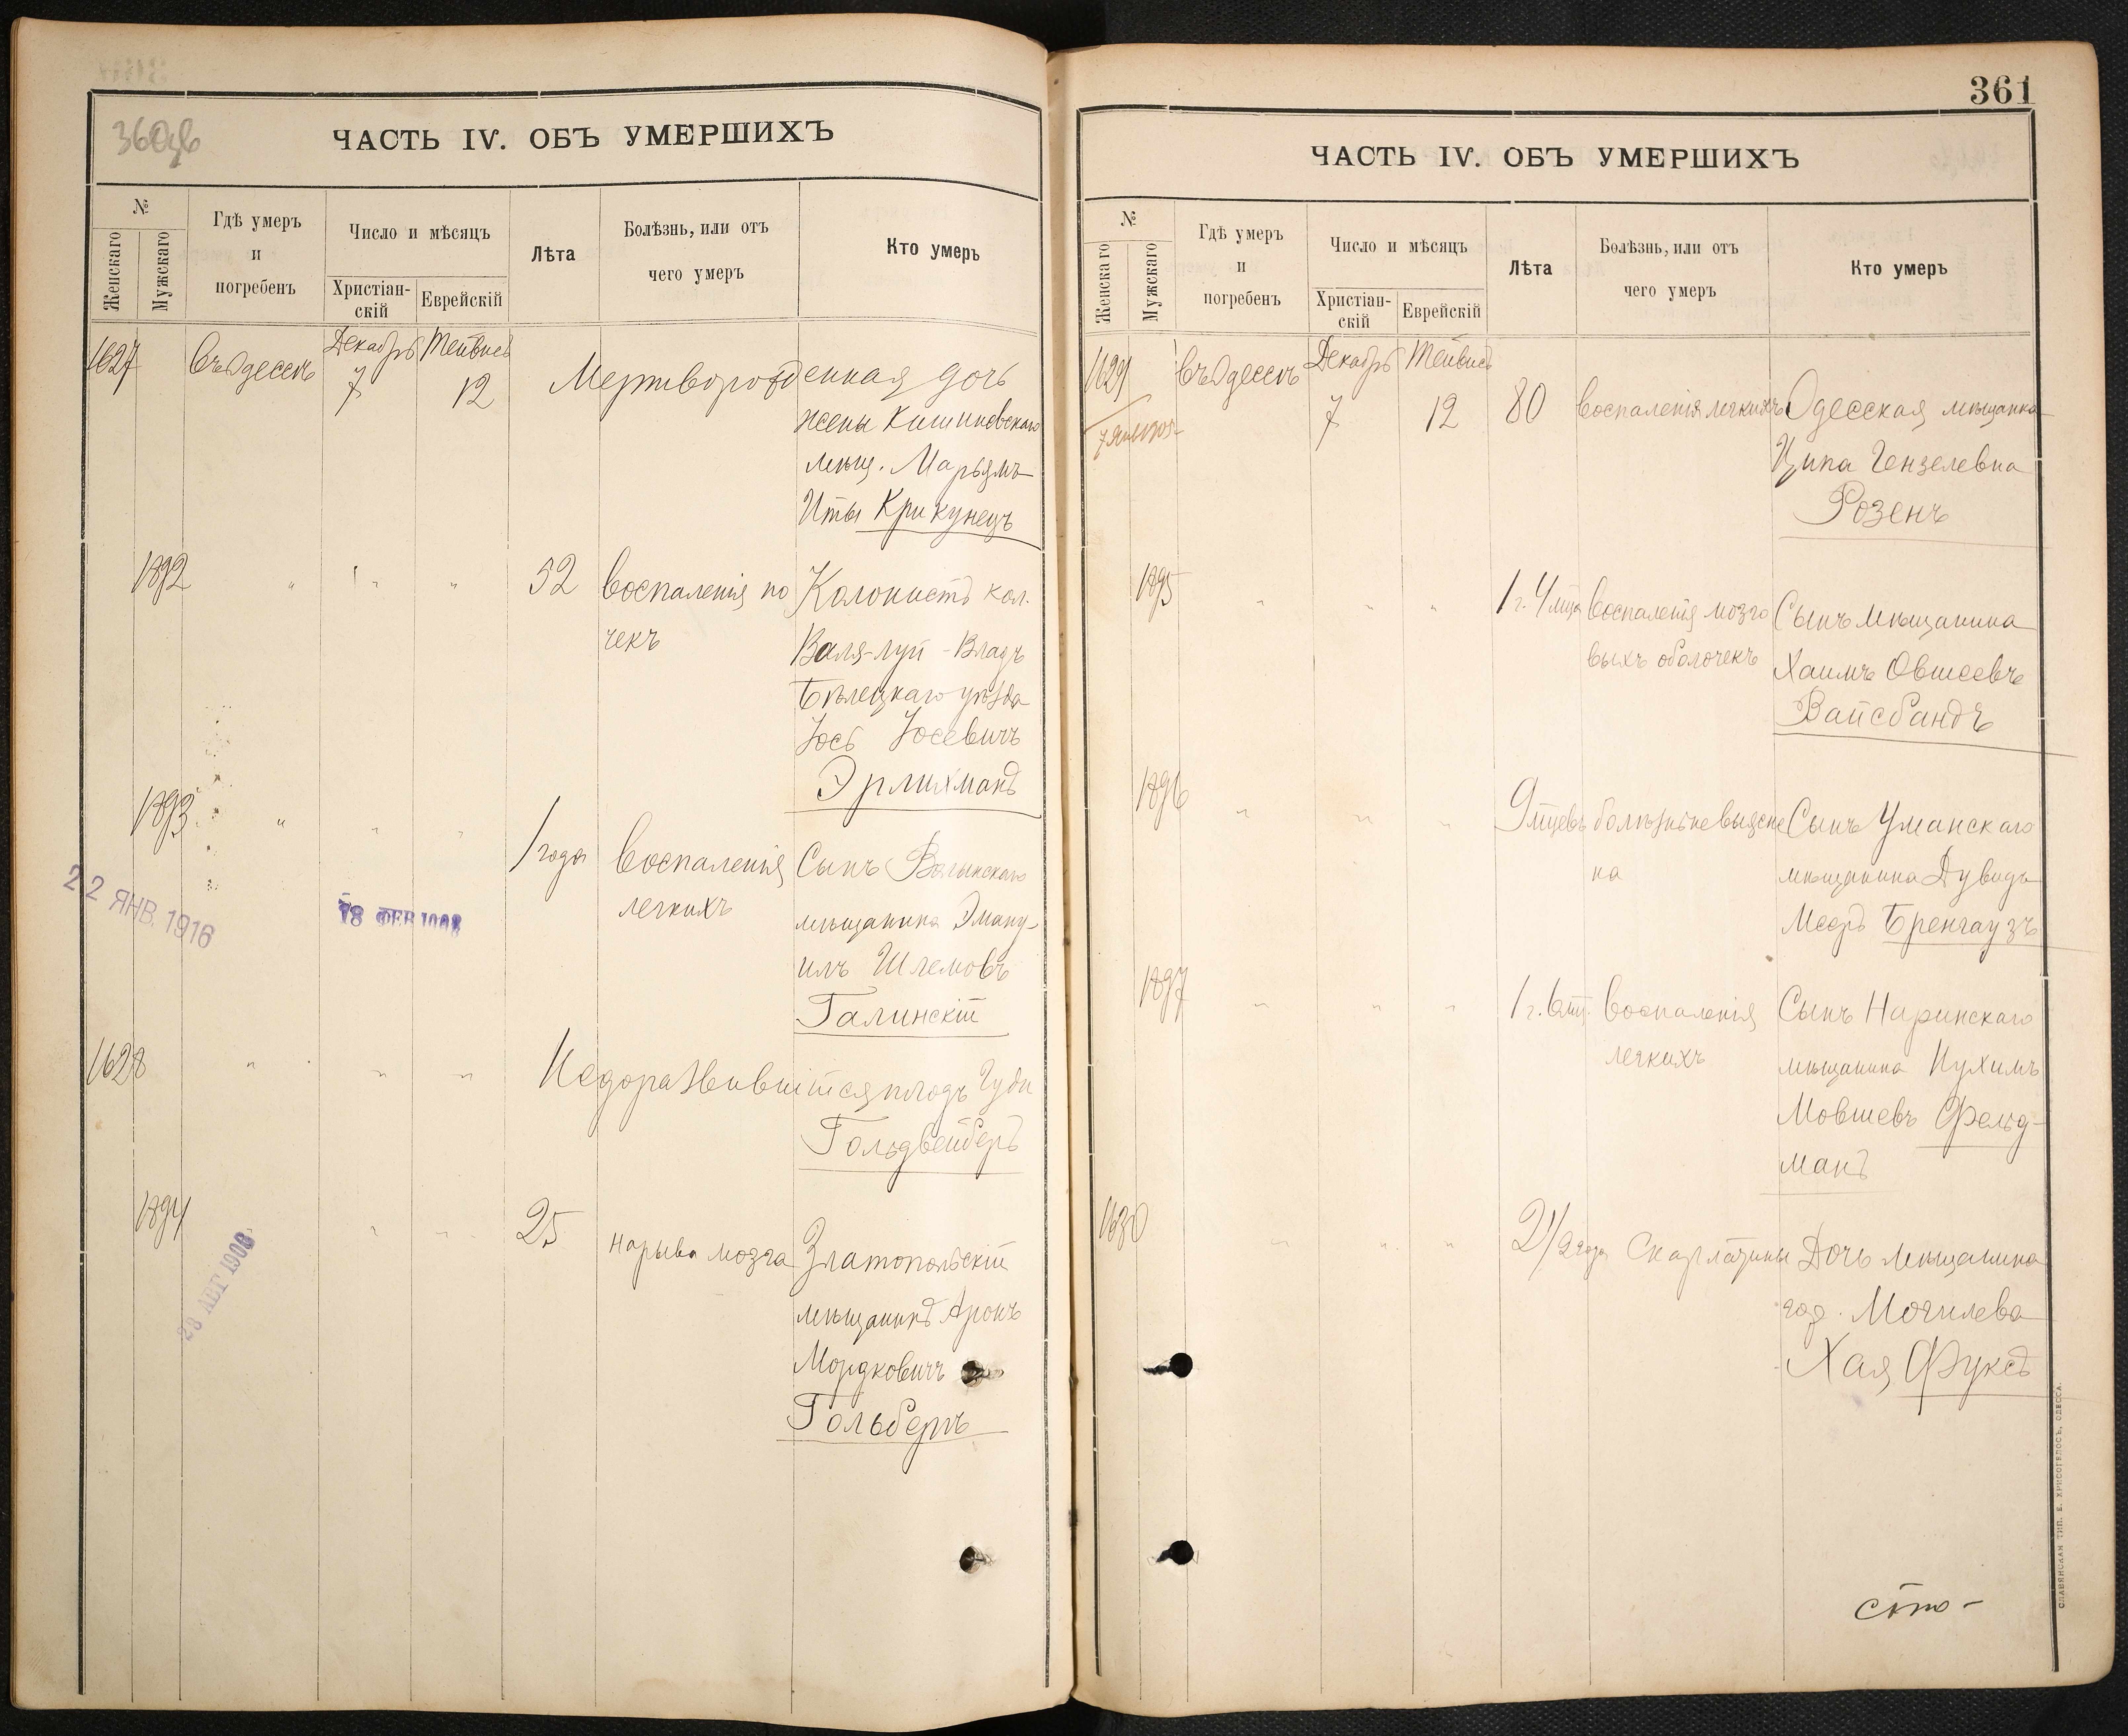 360об
ЧАСТЬ IV. ОБЪ УМЕРШИХЪ
№
Женскаго
Мужскаго
Гдѣ умеръ
и
погребенъ
Число и мѣсяцъ
Христіан-
скій
Еврейскій
Лѣта
Болѣзнь, или отъ
чего умеръ
Кто умеръ
1627
Въ Одессѣ
Декабрь
7
Тейвисъ
12
Мертворожденная дочь
жены Кишиневскаго
мѣщ. Марьямъ
Иты Крикунецъ
1892
" " "
52
воспаленія по
чекъ
Колонистъ кол.
Валя-луй-Владъ
Бѣлецкаго уѣзда
Іось Іосевичъ
Эрлихманъ
1893
" " "
1 года
Воспаленія
легкихъ
Сынъ
мѣщанина Эману-
илъ Шлемовъ
Галинскій
22 ЯНВ. 1916
18 ФЕВ 1908
1628
" " "
Недоразвившійся плодъ Гуди
Гольдвейберъ
1894
" "
25
нарыва мозга
Златопольскій
мѣщанинъ Аронъ
Мордковичъ
Гольберъ
28 АВГ 1908
361
ЧАСТЬ IV. ОБЪ УМЕРШИХЪ
№
Женскаго
Мужскаго
Гдѣ умеръ
и
погребенъ
Число и мѣсяцъ
Христіан-
скій
Еврейскій
Лѣта
Болѣзнь, или отъ
чего умеръ
Кто умеръ
1629
Въ Одессѣ
Декабрь
7
Тейвисъ
12
80
воспаленія легкихъ
Одесская мѣщанка
Ципа Гензелевна
Розенъ
1895
" " "
1 г. 4 мца
Воспаленія мозго
выхъ оболочекъ
Сынъ мѣщанина
Хаимъ Овшеевъ
Вайсбандъ
1896
" " "
9 мцевъ
болѣзнь не выясне
на
Сынъ Уманскаго
мѣщанина Дувидъ
Мееръ Бренгаузъ
1897
" " "
1 г. 6 мц.
Воспаленія
легкихъ
Сынъ Наринскаго
мѣщанина Нухимъ
Мовшевъ Фельд-
манъ
1630
" " "
2 1/2 года
Скарлатины
Дочь мѣщанина
гор. Могилева
Хая Фуксъ
сто-
СЛАВЯНСКАЯ ТИП. Е. ХРИСОГЕЛОСЪ, ОДЕССА.